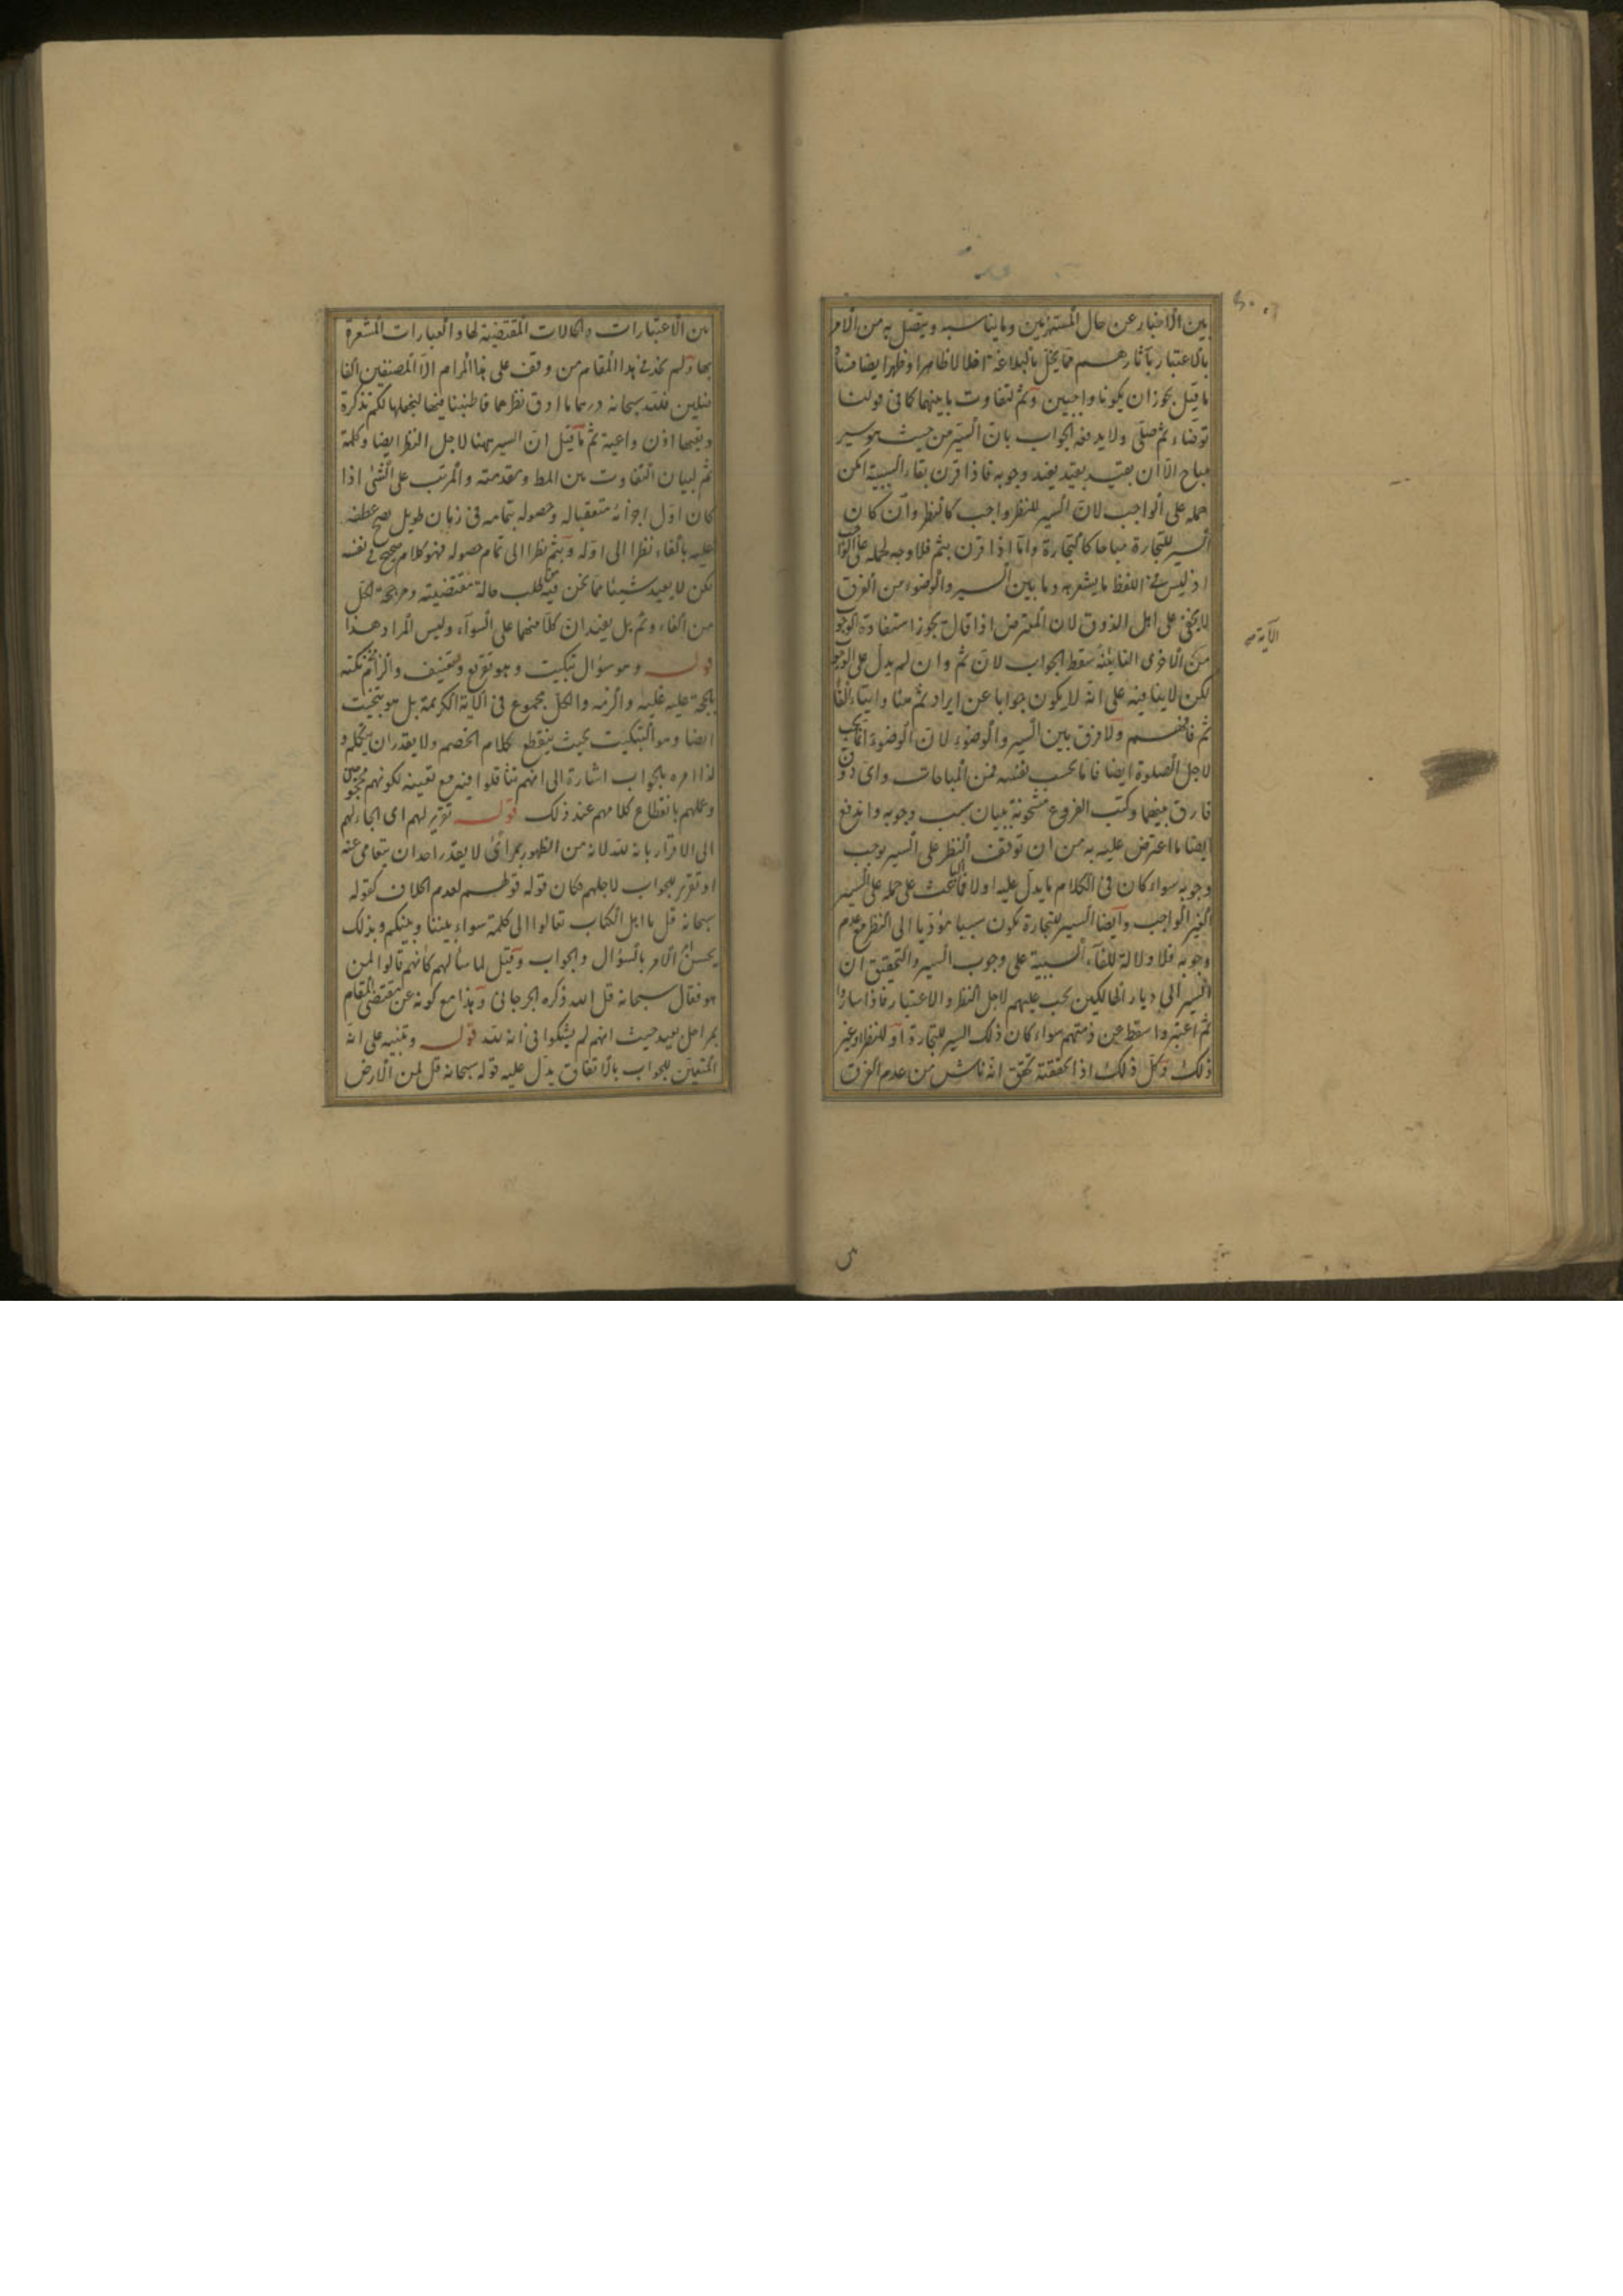 بين الاخبار عن حال المستهزئين وما يناسبه ويتصل به من الامر
بالاعتبار بآثارهم مما يخل بالبلاغة اخلالا ظاهرا وظهر ايضا فساد
ما قيل يجوز ان يكونا واجبين وثم لتفاوت ما بينهما كما في قولنا
توضاء ثم صلى ولا يدفعه الجواب بان السير من حيث هو سير
مباح الا ان يقيد بقيد يفيد وجوبه فاذا قرن بفاء السببية امكن
حمله على الواجب لان السير للنظر واجب كالنظر وان كان
السير للتجارة مباحا كالتجارة واما اذا قرن بثم فلا وجه لحمله على الواجب
اذ ليس في اللفظ ما يشعر به وما بين السير والوضوء من الفرق
لا يخفى على اهل الذوق لان المعترض اذا قال يجوز استفادة الوجوب
من الاخرى الغائية سقط الجواب لان ثم وان لم يدل على الوجوب
لكن لا ينافيه على انه لا يكون جوابا عن ايراد ثم هنا وايتاء الفاء
ثم فافهم ولا فرق بين السير والوضوء لان الوضوء انما يجب
لاجل الصلوة ايضا فاما بحسب نفسه فمن المباحات واى ذوق
فارق بينهما وكتب الفروع مشحونة ببيان سبب وجوبه واندفع
ايضا ما اعترض عليه به من ان توقف النظر على السير يوجب
وجوبه سواء كان في الكلام ما يدل عليه اولا فالباحث على حمله على السير
الغير الواجب وايضا السير للتجارة يكون سببا مؤديا الى النظر مع عدم
وجوبه فلا دلالة للفاء السببية على وجوب السير والتحقيق ان
السير الى ديار الهالكين يجب عليهم لاجل النظر والاعتبار فاذا ساروا
ثم اعتبروا سقط عن ذمتهم سواء كان ذلك السير للتجارة او للنظر او غير
ذلك وكل ذلك اذا حققته تحقق انه ناش من عدم الفرق
الآية
بين الاعتبارات والحالات المقتضية لها والعبارات المشعرة
بها ولم نجد في هذا المقام من وقف على هذا المرام الا المصنفين الفا
ضلين فلله سبحانه درهما ما ادق نظرهما فاطنبنا فيها لنجعلها لكم تذكرة
وتعيها اذن واعية ثم ما قيل ان السير ههنا لاجل النظر ايضا وكلمة
ثم لبيان التفاوت بين المط ومقدمته والمرتب على الشئ اذا
كان اول اجزائه متعقبا له وحصوله بتمامه في زمان طويل يصح عطفه
عليه بالفاء نظرا الى اوله وبثم نظرا الى تمام حصوله فهو كلام صحيح في نفسه
لكن لا يفيد شيئا مما نحن فيه من طلب حالة مقتضيته ومرجحة لكل
من الفاء وثم بل يفيد ان كلا منهما على السواء وليس المراد هذا
قوله وهو سؤال تبكيت وهو تقريع وتعنيف والزام بكته
بالحجة عليه غلبه والزمه والكل مجموع في الآية الكريمة بل هو تبكيت
ايضا وهو التبكيت بحيث ينقطع كلام الخصم ولا يقدر ان يتكلم و
لذا امره بالجواب اشارة الى انهم تثاقلوا فيه مع تعينه لكونهم محجوجين
وعلمهم بانقطاع كلامهم عند ذلك قوله تقرير لهم اى الجاء لهم
الى الاقرار بانه لله لانه من الظهور بمرأى لا يقدر احد ان يتعامى عنه
او تقرير للجواب لاجلهم فكان قوله قولهم لعدم الخلاف كقوله
سبحانه قل يا اهل الكتاب تعالوا الى كلمة سواء بيننا وبينكم وبذلك
يحسن الامر بالسؤال والجواب وقيل لما سألهم كانهم قالوا لمن
هو فقال سبحانه قل لله ذكره الجرجانى وهذا مع كونه عن مقتضى المقام
بمراحل بعيد حيث انهم لم يشكوا في انه لله قوله وتنبيه على انه
المتعين للجواب بالاتفاق يدل عليه قوله سبحانه قل لمن الارض